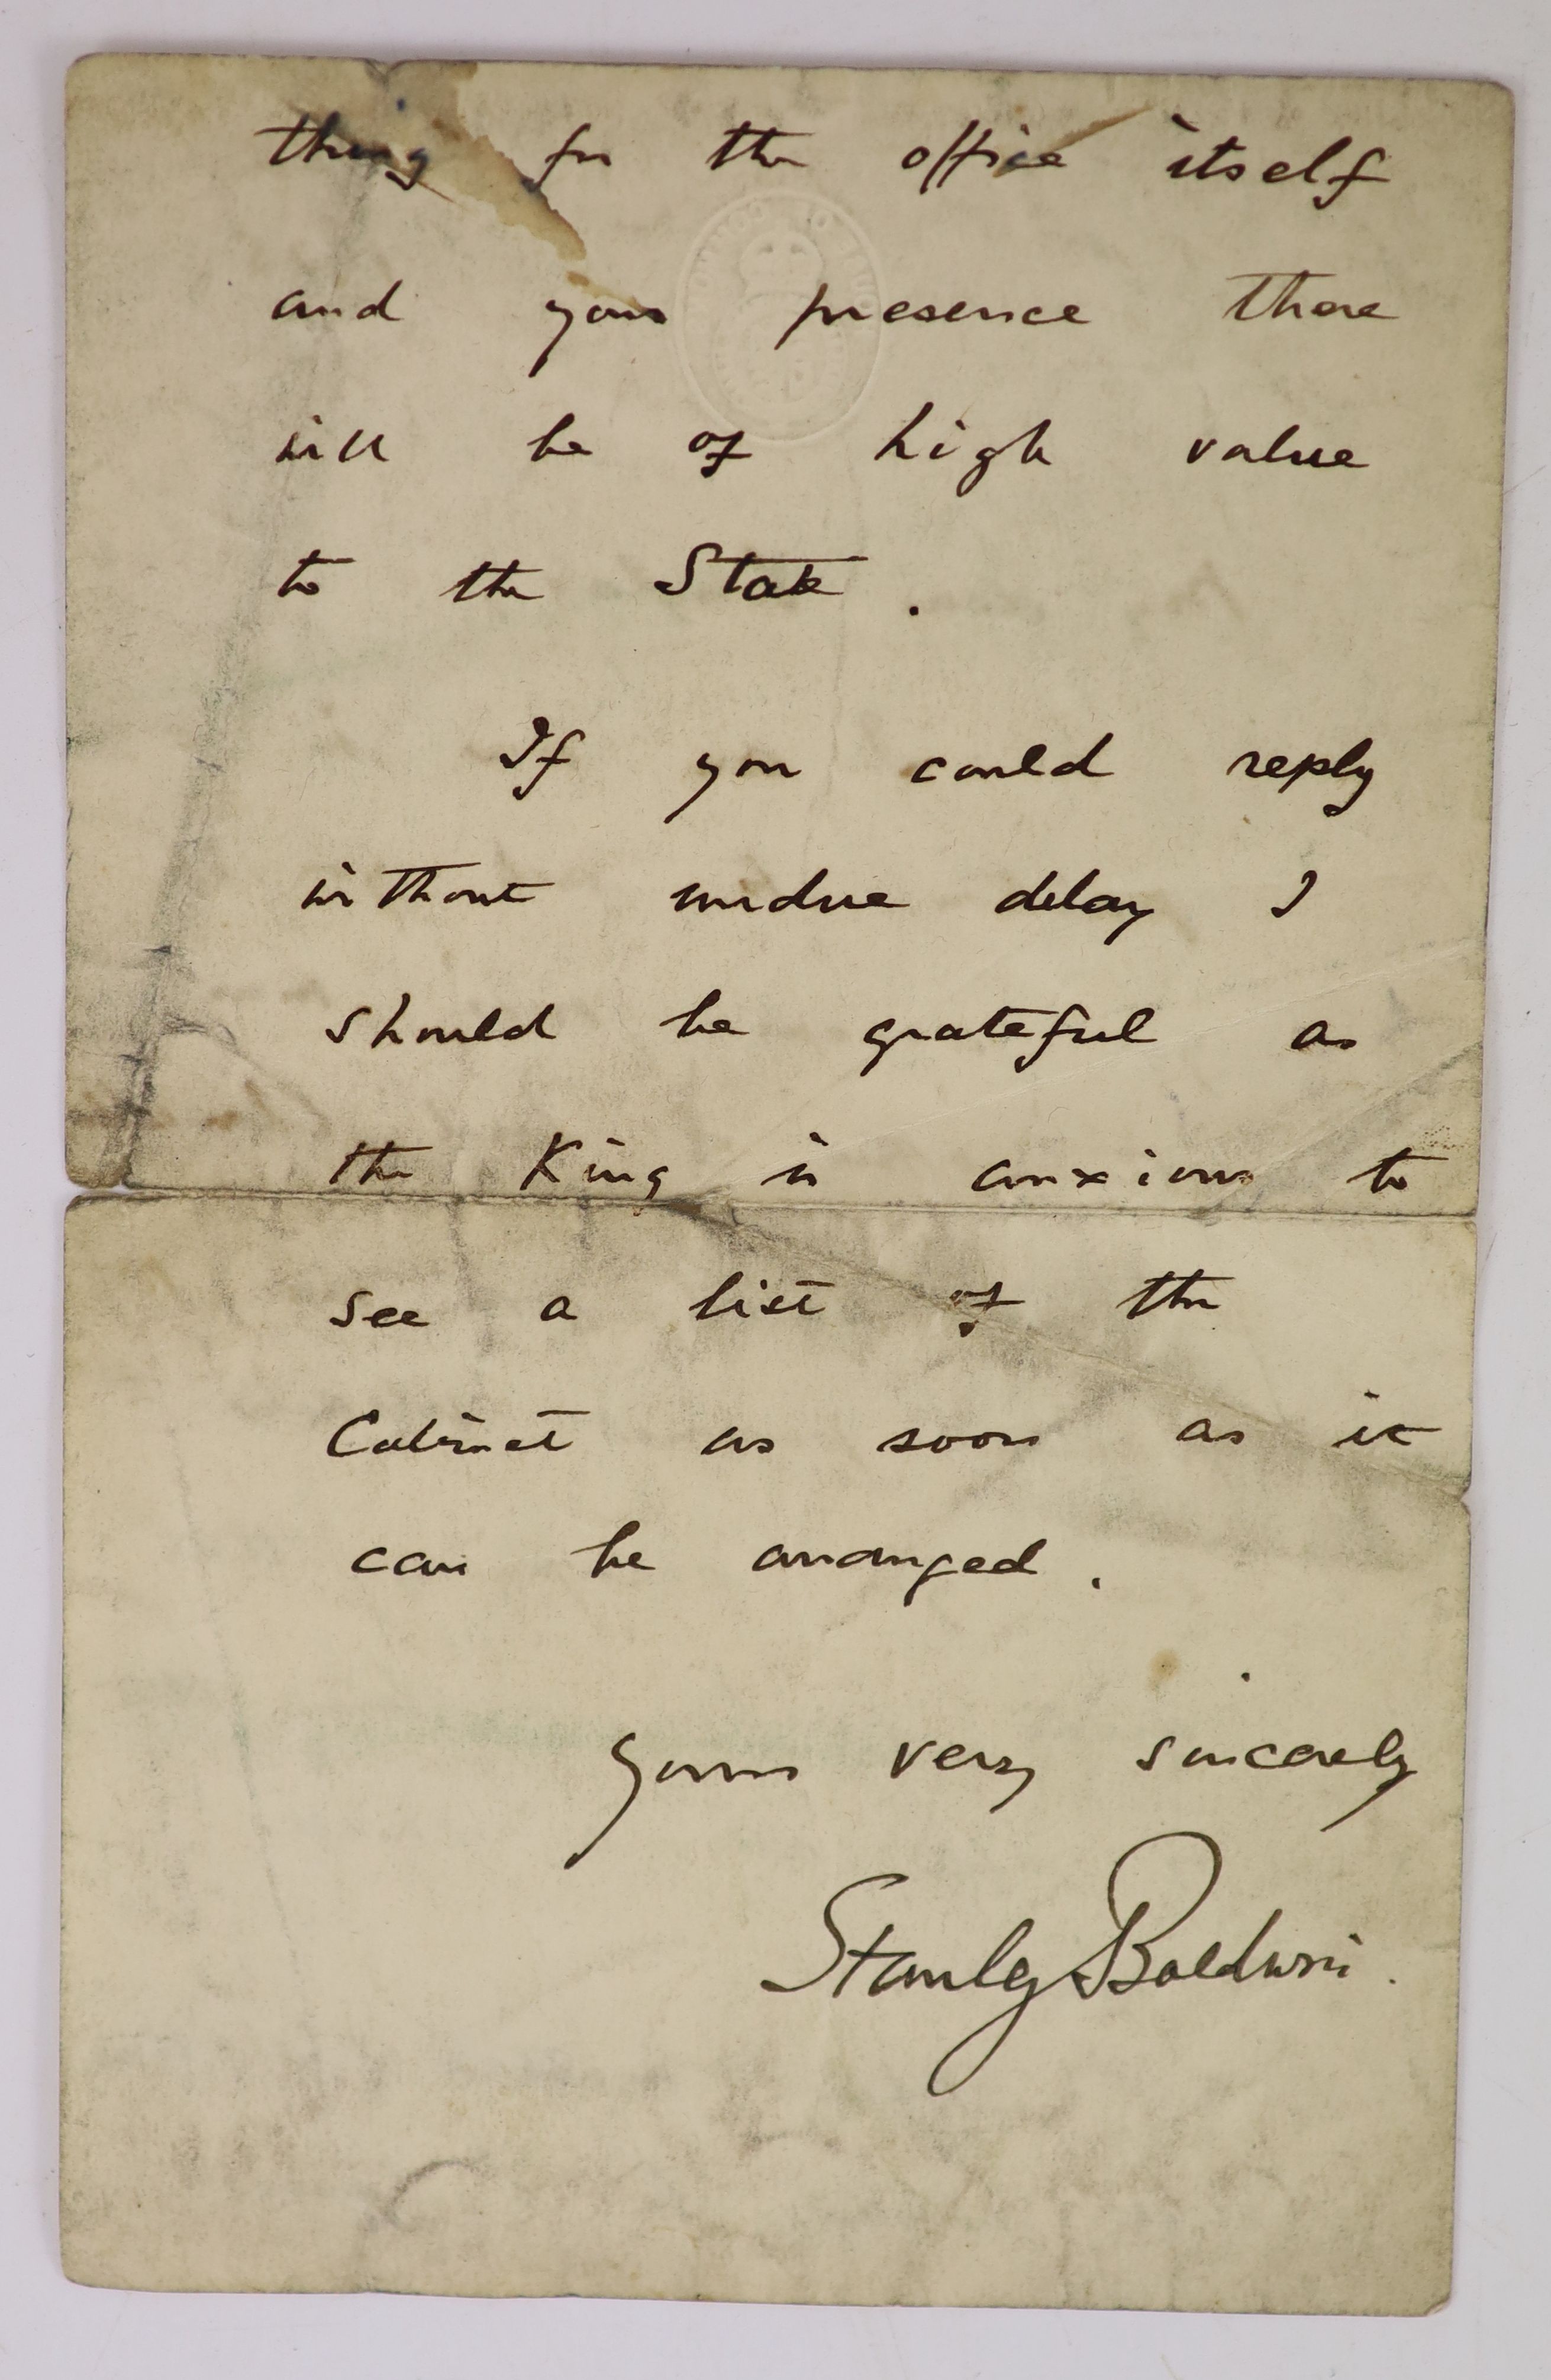 thing for the office itself
and your presence there
will be of high value
to the State.
If you could reply
without undue delay I
should be grateful as
the King is anxious to
see a list of the
Cabinet as soon as it
can be arranged.
Yours very sincerely
Stanley Baldwin.